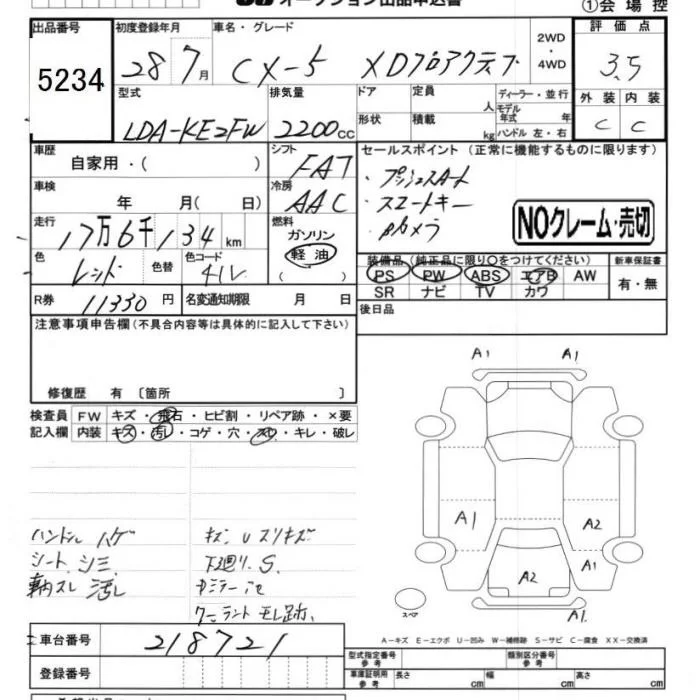 オークション出品申込書
①会場控
出品番号
5234
初度登録年月
28 7月
車名・グレード
CX-5 XDプロアクティブ
2WD
・
4WD
評価点
3.5
型式
LDA-KE2FW
排気量
2200cc
ドア
形状
定員
人
積載
kg
ディーラー・並行
モデル年式 年
ハンドル 左・右
外装 内装
C C
車歴
自家用・( )
シフト
FAT
セールスポイント (正常に機能するものに限ります)
・プッシュスタート
・スマートキー
・Bカメラ
NOクレーム・売切
車検
年 月( 日)
冷房
AAC
走行
17万6千134km
燃料
ガソリン
軽油
( )
色
レッド
色替
色コード
41V
装備品(純正品に限り○をつけてください)
PS PW ABS エアB AW
SR ナビ TV カワ
新車保証書
有・無
R券 11330円
名変通知期限 月 日
後日品
注意事項申告欄(不具合内容等は具体的に記入して下さい)
修復歴 有 〔箇所 〕
検査員
記入欄
FW キズ・飛石・ヒビ割・リペア跡・×要
内装 キズ・汚レ・コゲ・穴・スレ・キレ・破レ
ハンドル ハゲ
シート シミ
汚レ
キズ U スリキズ
下廻り S
クーラント モレ跡
A1 A1
A1 A2
A1
A2
A1
スペア
A-キズ E-エクボ U-凹み W-補修跡 S-サビ C-腐食 XX-交換済
車台番号 218721
型式指定番号
参考
類別区分番号
参考
登録番号
車庫証明用
参考
長さ cm 幅 cm 高さ cm